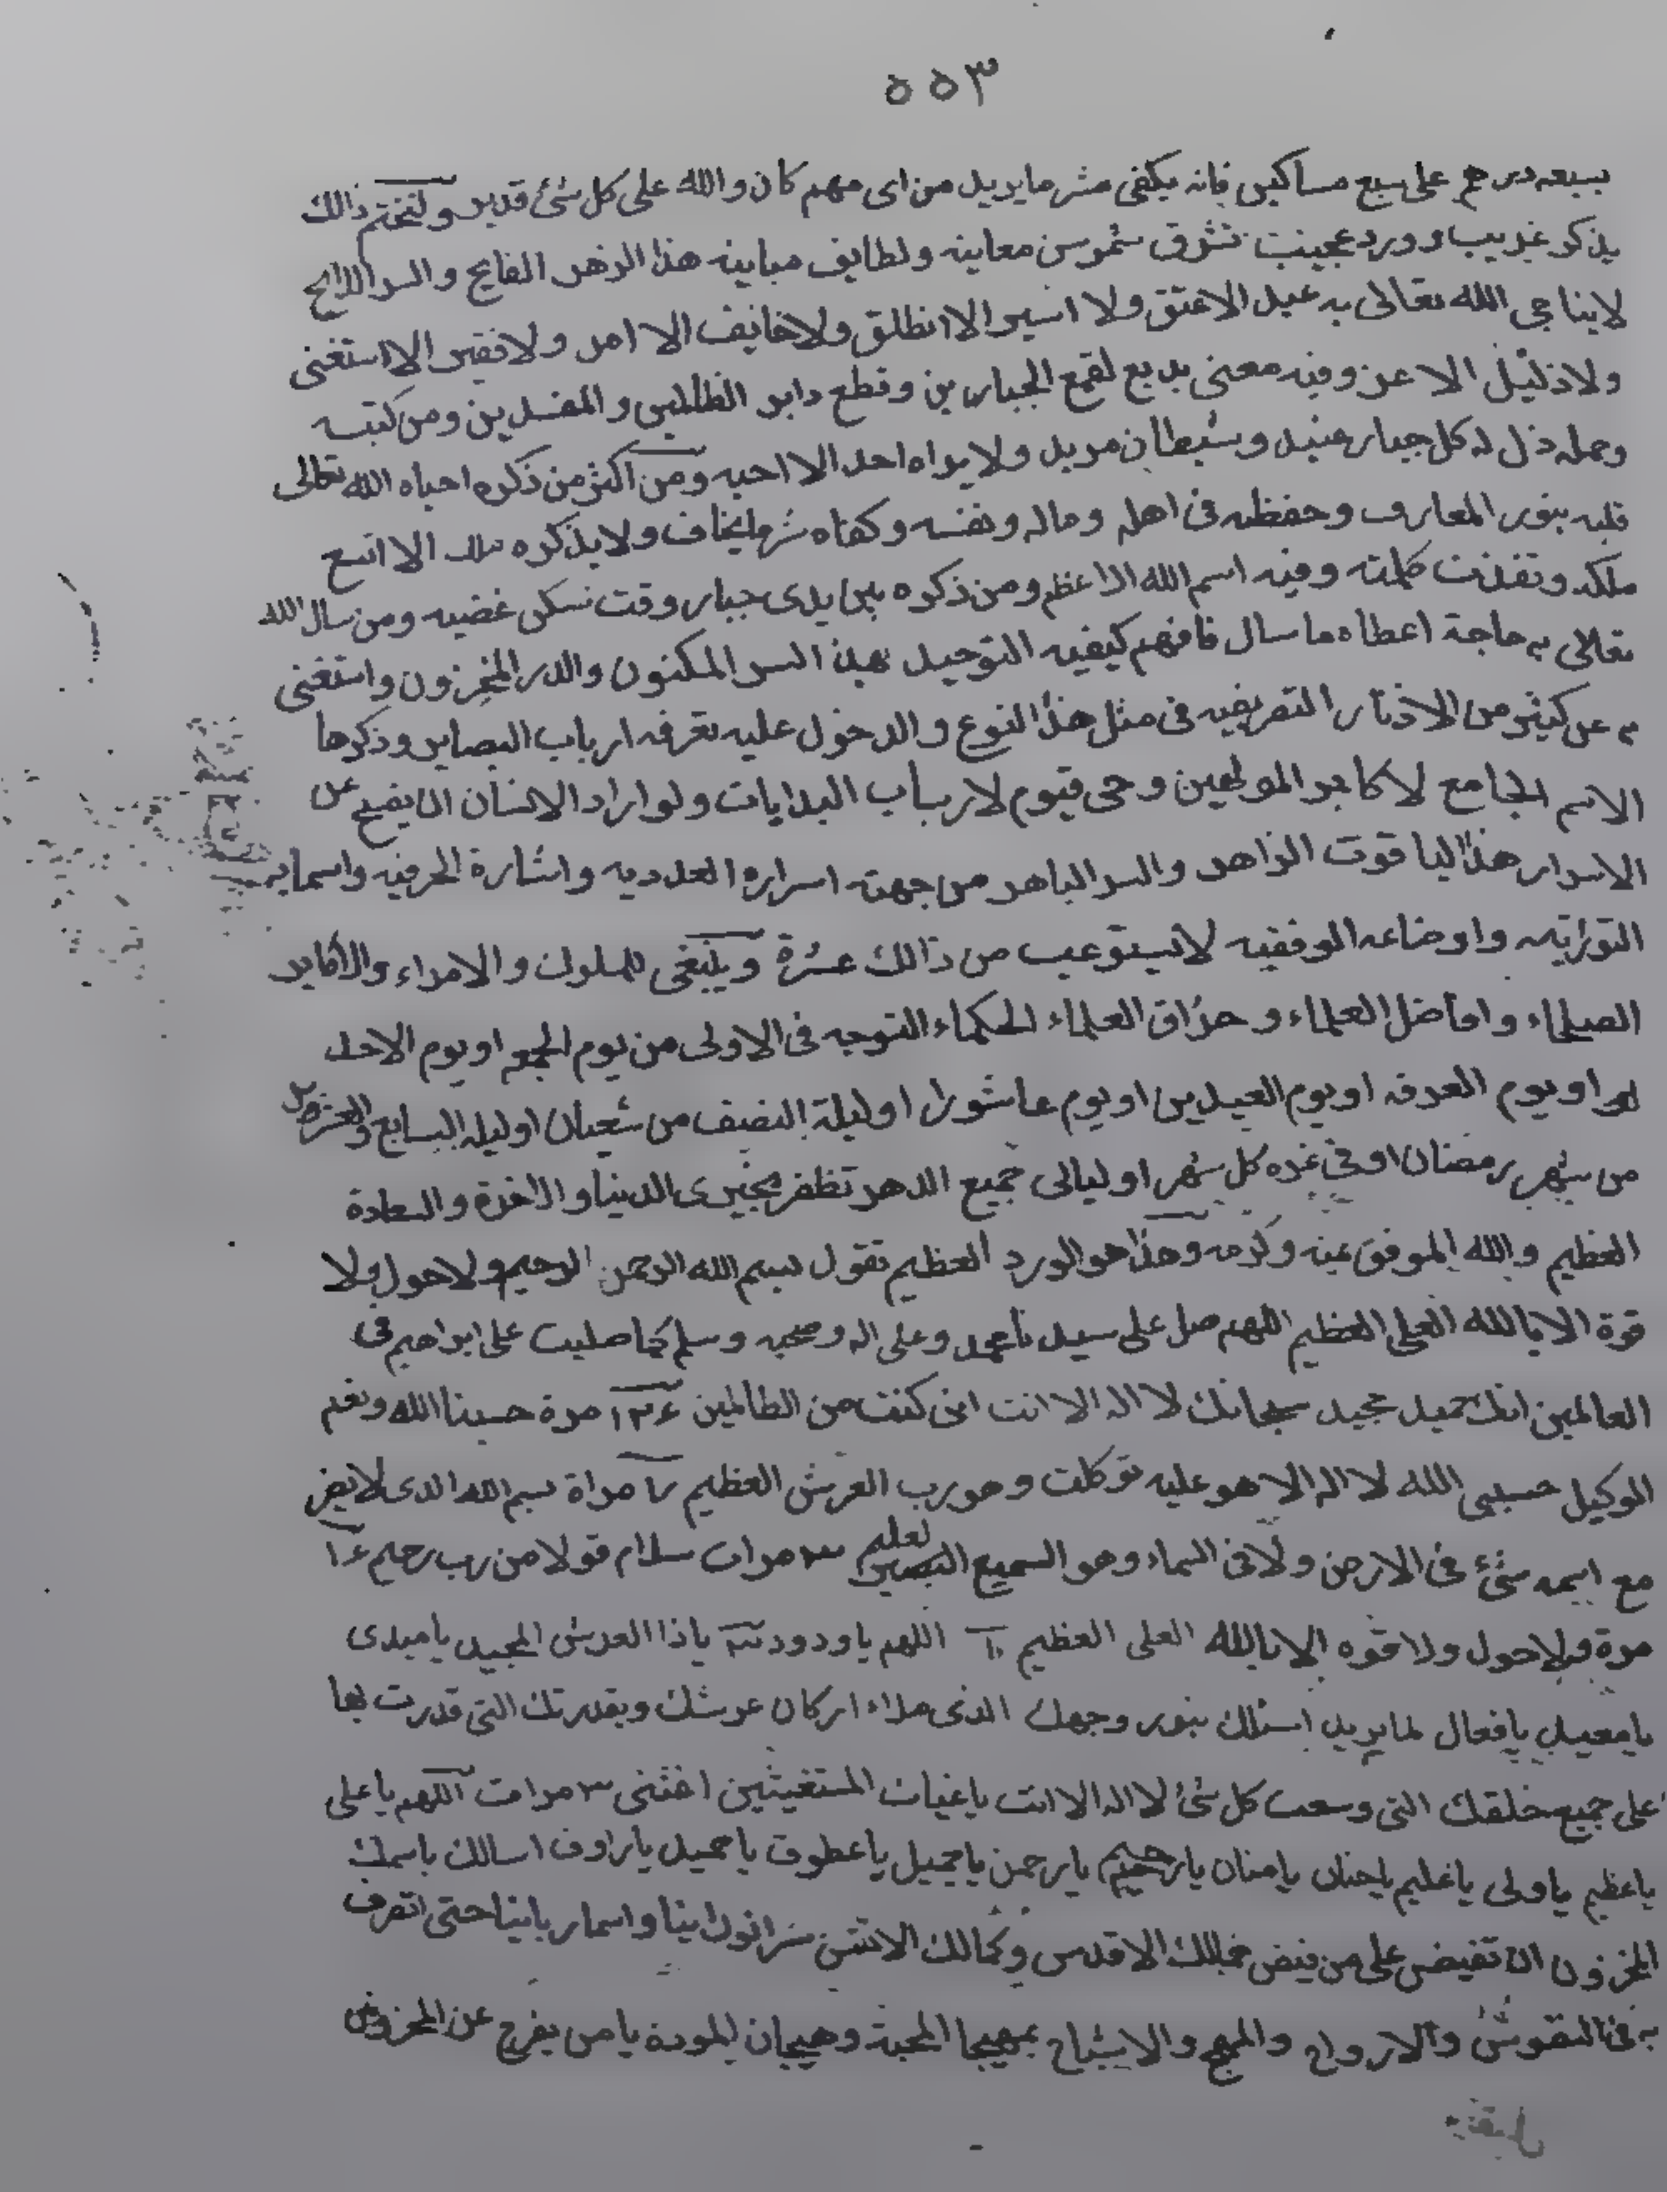 ٥٥٣
بسبعه دراهم على سبع مساكين فانه يكفى مشر مايريد من اى مهم كان والله على كل شئ قدير ولنختم ذالك
بذكر غريب وورد عجيب تشرق شموس معاينه ولطايف مباينه هذا الزهر الفايح والسر اللايح
لايناجى الله تعالى به عبد الا عتق ولا اسير الا انطلق ولاخايف الا امن ولا فقير الا استغنى
ولاذليل الا عز وفيه معنى بديع لقمع الجبارين وقطع دابر الظالمين والمفسدين ومن كتبه
وحمله ذل له كل جبار عنيد وشيطان مريد ولا يراه احد الا احبه ومن اكثر من ذكره احياه الله تعالى
قلبه بنور المعارف وحفظه فى اهله وماله ونفسه وكفاه شر مايخاف ولا يذكره ملك الا اتسع
ملكه ونفذت كلمته وفيه اسم الله الاعظم ومن ذكره بين يدى جبار وقت نسكن غضبه ومن سال الله
تعالى به حاجة اعطاه ما سال فافهم كيفيه التوحيد بهذ السر المكنون والدر المخزون واستغنى
به عن كيثر من الاذكار التعريفيه فى مثل هذ النوع والدخول عليه تعرفه ارباب البصاير وذكرها
الاسم الجامع لاكابر المولهين وحى قيوم لارباب البدايات ولو اراد الانسان ان يفصح عن
الاسرار هذ الياقوت الزاهر والسر الباهر من جهته اسراره العدديه واشارة الحرفيه واسمايه
التوراتيه واوضاعه الوفقيه لايستوعب من ذالك عشرة وينبغى للملوك والامراء والاكابر
الصلحاء وافاضل العلماء وحذاق العلماء الحكماء التوجه فى الاولى من يوم الجمعه او يوم الاحد
او يوم العرفه او يوم العيدين او يوم عاشورا او ليلة النصف من شعبان او ليله السابع والعشرين
من شهر رمضان او فى غره كل شهر او ليالى جميع الدهر تظفر بخيرى الدينا والاخرة والسعادة
العظيم والله الموفق بمنه وكرمه وهذا هو الورد العظيم تقول بسم الله الرحمن الرحيم ولا حول ولا
قوة الا بالله العلى العظيم اللهم صل على سيدنا محمد وعلى اله وصحبه وسلم كما صليت على ابراهيم فى
العالمين انك حميد مجيد سبحانك لا اله الا انت انى كنت من الظالمين ١٣٤ مرة حسبنا الله ونعم
الوكيل حسبى الله لا اله الا هو عليه توكلت وهو رب العرش العظيم ٧ مراة بسم الله الذى لا يضر
مع اسمه شئ فى الارض ولا فى السماء وهو السميع البصير العليم ٣ مرات سلام قولا من رب رحيم ١٤
مرة ولا حول ولا قوه الا بالله العلى العظيم ١٠ اللهم يا ودود ٣ ياذا العرش المجيد يا مبدى
يا معيد يا فعال لما يريد اسئلك بنور وجهك الذى ملاء اركان عرشك وبقدرتك التى قدرت بها
على جميع خلقك التى وسعت كل شئ لا اله الا انت يا غياث المستغيثين اغثنى ٣ مرات اللهم يا على
يا عظيم يا ولى يا عليم يا حنان يا منان يا رحيم يا رحمن يا جميل يا عطوف يا حميد يا راوف اسالك باسمك
المخزون ان تفيض على من فيض جمالك الاقدس وكمالك الانسى سرا نورانيا واسما ربانيا حتى اتصرف
به فى النفوش والارواح والمهج والاشباح بمهيجا المحبة وهيجان لمودة يا من يفرج عن المخزون